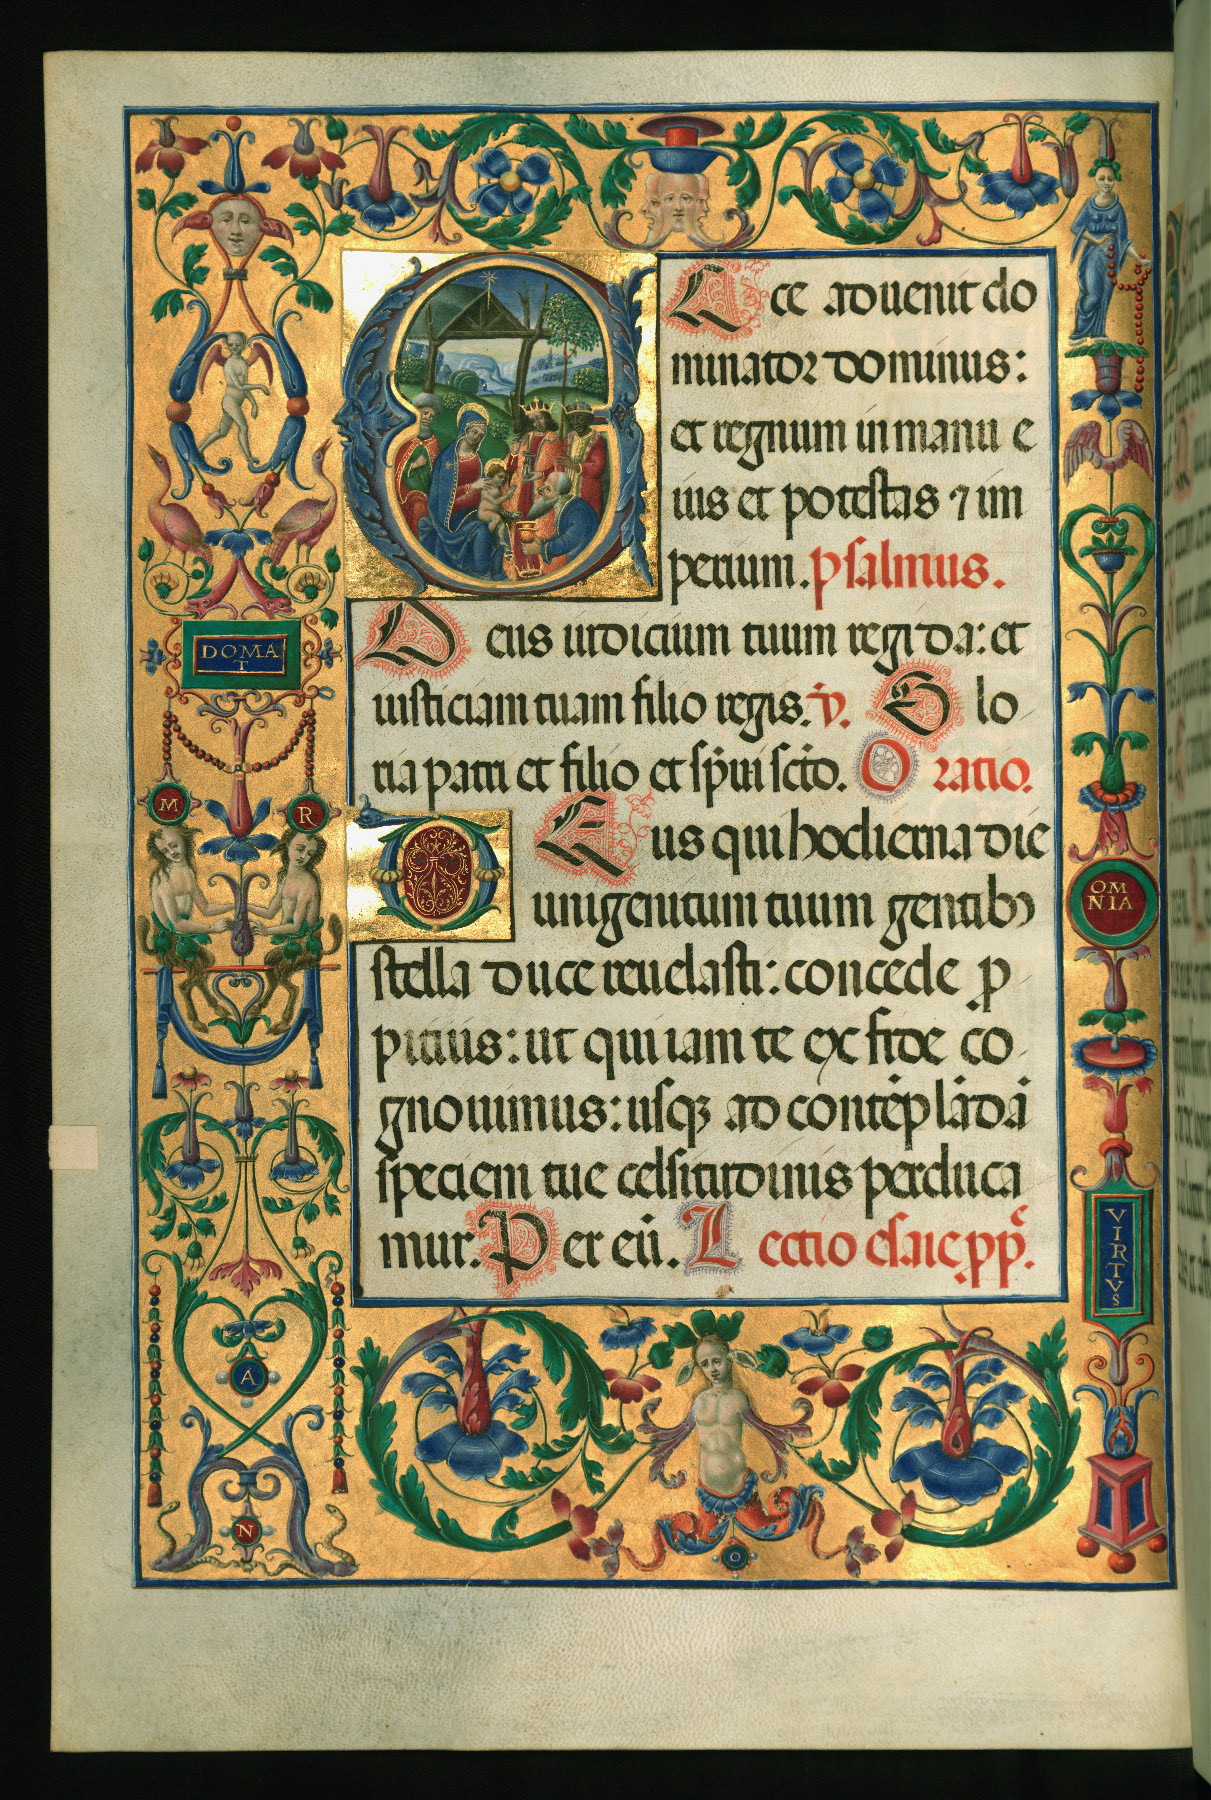 Ecce aduenit do
minator dominus:
et regnum in manu e
ius et potestas ⁊ im
perium. psalmus.
Deus iudicium tuum regi da: et
iusticiam tuam filio regis. v̄. Glo
ria patri et filio et sp̄ui sc̄to. Oratio.
DEus qui hodierna die
unigenitum tuum gentibꝰ
stella duce reuelasti: concede p
pitius: ut qui iam te ex fide co
gnouimus: usqꝫ ad contēplādā
speciem tue celsitudinis perduca
mur. Per eū. Lectio esaie pp̄.
DOMA
T
M
R
A
N
O
OM
NIA
VIRTVS